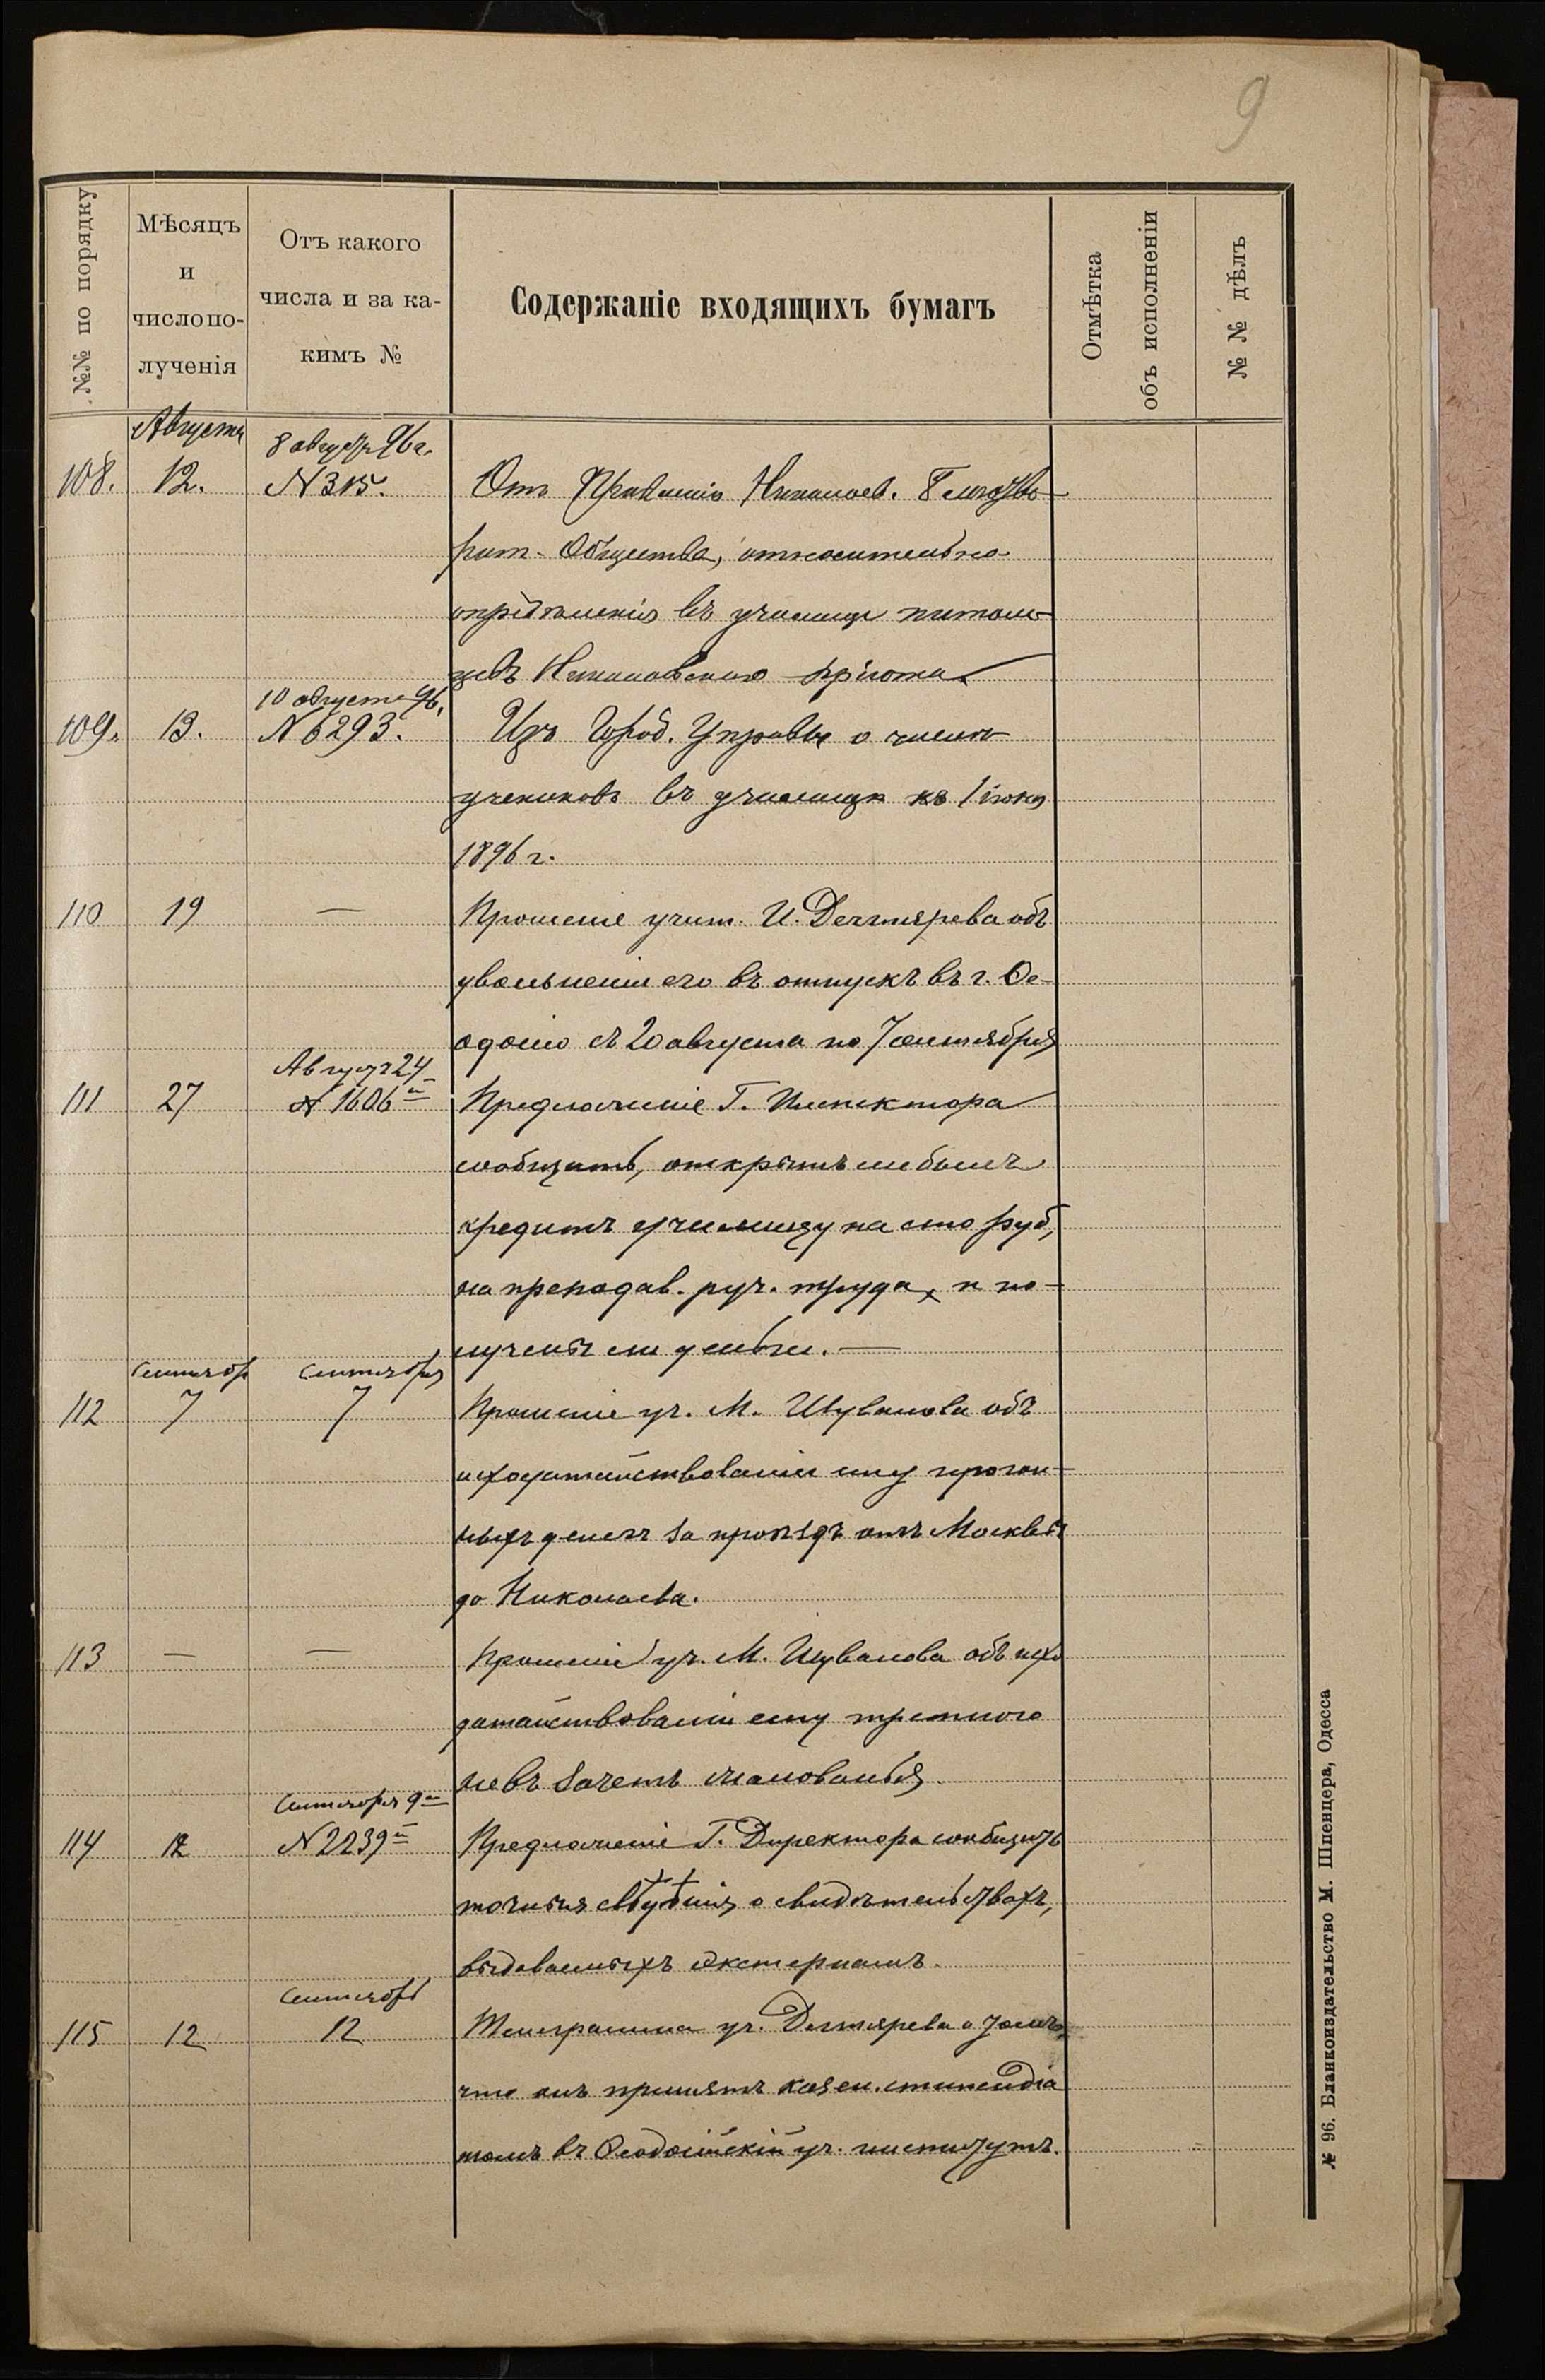 9
№№ по порядку
Мѣсяцъ
и
число по-
лученія
Отъ какого
числа и за ка-
кимъ №
Содержаніе входящихъ бумагъ
Отмѣтка
объ исполненіи
№ № дѣлъ
Августъ
8 август. 96 г.
108. 12. N 315. Отъ Правленія Николаев. Благотво-
рит. Общества, относительно
опредѣленія въ училище питом-
цевъ Николаевскаго пріюта.
10 августа 96.
109. 13. N 6293. Изъ Город. Управы о числѣ
учениковъ въ училищѣ къ 1 іюня
1896 г.
110 19 — Прошеніе учит. И. Дегтярева объ
увольненіи его въ отпускъ въ г. Ѳе-
одосію съ 20 августа по 7 сентября
Август 24
111 27 N 1606й Предложеніе Г. Инспектора
сообщить, открытъ ли былъ
кредитъ училищу на сто руб,
на преподав. руч. труда, и по-
лучены ли деньги. —
Сентябр Сентября
112 7 7 Прошеніе уч. М. Шувалова объ
исходатайствованіи ему прогон-
ныхъ денегъ за проѣздъ отъ Москвы
до Николаева.
113 — — Прошеніе уч. М. Шувалова объ исхо
датайствованіи ему третного
не въ зачетъ жалованья.
Сентября 9го
114 12 N 2239й Предложеніе Г. Директора сообщить
точныя свѣдѣнія о свидѣтельствахъ,
выдаваемыхъ экстернамъ.
Сентябрь
115 12 12 Телеграмма уч. Дегтярева о томъ,
что онъ принятъ казен. стипендіа
томъ въ Ѳеодосійскій уч. институтъ.
№ 96. Бланкоиздательство М. Шпенцера, Одесса